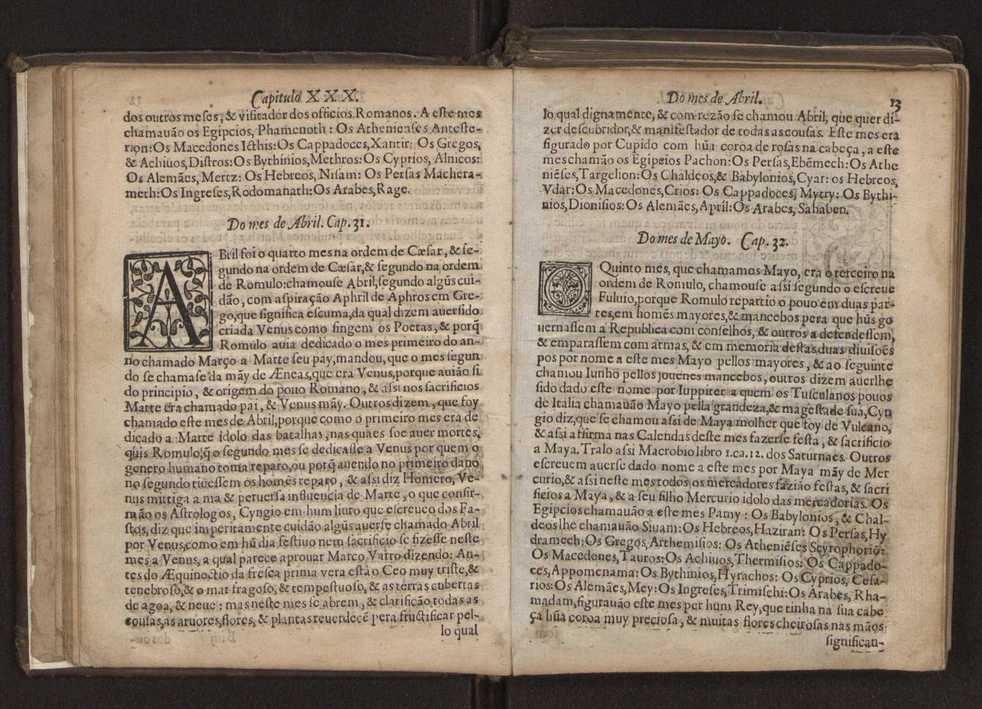 Capitulo XXX.
dos outros meses, & visitador dos officios Romanos. A este mes
chamauão os Egipcios, Phamenoth: Os Athenienses Anteste-
rion: Os Macedones Icthis: Os Cappadoces, Xantir: Os Gregos,
& Achiuos, Distros: Os Bythinios, Methros: Os Cyprios, Alnicos:
Os Alemães, Mertz: Os Hebreos, Nisam: Os Persas Machera-
meth: Os Ingreses, Rodomanath: Os Arabes, Rage.
Do mes de Abril. Cap. 31.
ABril foi o quarto mes na ordem de Cæsar, & se-
gundo na ordem de Cæsar, & segundo na ordem
de Romulo: chamouse Abril, segundo algũs cui-
dão, com aspiração Aphril de Aphros em Gre-
go, que significa escuma, da qual dizem auer sido
criada Venus como fingem os Poetas, & porq̃
Romulo auia dedicado o mes primeiro do an-
no chamado Março a Marte seu pay, mandou, que o mes segun
do se chamase da mãy de Æneas, que era Venus, porque auião si
do principio, & origem do pouo Romano, & assi nos sacrificios
Marte era chamado pai, & Venus mãy. Outros dizem, que foy
chamado este mes de Abril, porque como o primeiro mes era de
dicado a Marte idolo das batalhas, nas quaes soe auer mortes,
quis Romulo; q̃ o segundo mes se dedicasse a Venus por quem o
genero humano toma reparo, ou porq̃ auendo no primeiro dano
no segundo tiuessem os homẽs reparo, & assi diz Homero, Ve-
nus mitiga a ma & peruersa influencia de Marte, o que confir-
mão os Astrologos, Cyngio em hum liuro que escreuco dos Fa-
stos, diz que imperitamente cuidão algũs auerse chamado Abril
por Venus, como em hũ dia festiuo nem sacrificio se fizesse neste
mes a Venus, a qual parece aprouar Marco Varro dizendo: An-
tes do Æquinoctio da fresca prima vera està o Ceo muy triste, &
tenebroso, & o mar fragoso, & tempestuoso, & as terras cubertas
de agoa, & neue: mas neste mes se abrem, & clarificão todas as
cousas, as aruores, flores, & plantas reuerdecẽ pera fructificar pel-
lo qual
Do mes de Abril.
13
lo qual dignamente, & com rezão se chamou Abril, que quer di-
zer descubridor, & manifestador de todas as cousas. Este mes era
figurado por Cupido com hũa coroa de rosas na cabeça, a este
mes chamão os Egipcios Pachon: Os Persas, Ebẽmech: Os Athe
niẽses, Targelion: Os Chaldeos, & Babylonios, Cyar: os Hebreos,
Vdar: Os Macedones, Crios: Os Cappadoces, Mytry: Os Bythi-
nios, Dionisios: Os Alemães, April: Os Arabes, Sahaben.
Do mes de Mayo. Cap. 32.
O Quinto mes, que chamamos Mayo, era o terceiro na
ordem de Romulo, chamouse assi segundo o escreue
Fuluio, porque Romulo repartio o pouo em duas par-
tes, em homẽs mayores, & mancebos pera que hũs go
uernassem a Republica com conselhos, & outros a defendessem,
& emparassem com armas, & em memoria destas duas diuisoẽs
pos por nome a este mes Mayo pellos mayores, & ao seguinte
chamou Iunho pellos jouenes mancebos, outros dizem auerlhe
sido dado este nome por Iuppiter a quem os Tusculanos pouos
de Italia chamauão Mayo pella grandeza, & magestade sua, Cyn
gio diz, que se chamou assi de Maya molher que foy de Vulcano,
& assi affirma nas Calendas deste mes fazerse festa, & sacrificio
a Maya. Tralo assi Macrobio libro 1. ca. 12. dos Saturnaes. Outros
escreuem auerse dado nome a este mes por Maya mãy de Mer
curio, & assi neste mes todos os mercadores fazião festas, & sacri
ficios a Maya, & a seu filho Mercurio idolo das mercadorias. Os
Egipcios chamauão a este mes Pamy: Os Babylonios, & Chal-
deos lhe chamauão Siuan: Os Hebreos, Haziran: Os Persas, Hy
dramech: Os Gregos, Arthemisios: Os Atheniẽses Scyrophoriõ:
Os Macedones, Tauros: Os Achiuos, Thermisios: Os Cappado-
ces, Appomenama: Os Bythinios, Hyrachos: Os Cyprios, Cesa-
rios: Os Alemães, Mey: Os Ingreses, Trimischi: Os Arabes, Rha-
madam, figurauão este mes por hum Rey, que tinha na sua cabe
ça hũa coroa muy preciosa, & muitas flores cheirosas nas mãos
significan-